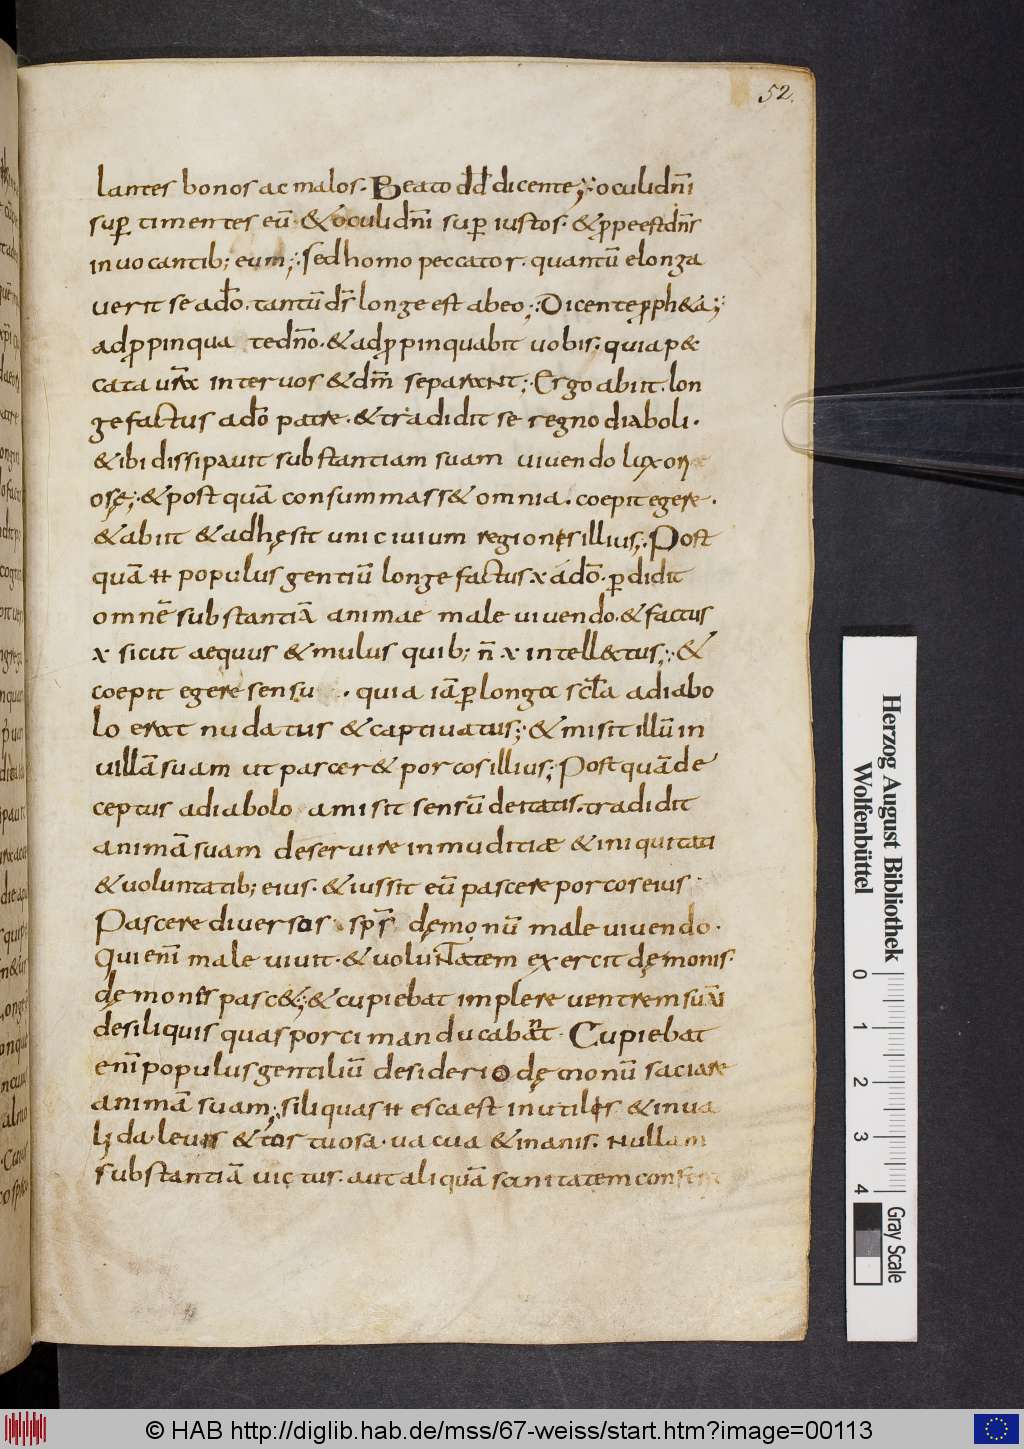 52.
lantes bonos ac malos. Beato dd̄ dicente; oculi dn̄i
sup̱ timentes eū. & oculi dn̄i sup̱ iustos. & p̱pe est dn̄s
inuocantib; eum; sed homo peccator. quantū elonga
uerit se a dō. tantū ds̄ longe est ab eo; Dicente p̱ph&a;
adp̱pinqua te dn̄o. & adp̱pinquabit uobis. quia pec
cata ur̄a inter uos & dm̄ separant; Ergo abiit. lon
ge factus a dō patre. & tradidit se regno diaboli.
& ibi dissipauit substantiam suam uiuendo luxori
osę; & postquā consummass& omnia. coepit egere.
& abiit & adhęsit uni ciuium regionis illius; Post
quā H populus gentiū longe factus .x. a dō. p̱didit
omnē substantiā animae male uiuendo. & factus
.x. sicut aequus & mulus quib; n̄ .x. intellectus; &
coepit egere sensu . quia iā p̱ longa scl̄a a diabo
lo erat nudatus & captiuatus; & misit illū in
uillā suam ut pascer& porcos illius; Postquā de
ceptus a diabolo amisit sensū deitatis. tradidit
animā suam deseruire inmuditiæ & iniquitati
& uoluntatib; eius. & iussit eū pascere porcos eius.
Pascere diuersos sp̄s dęmonū male uiuendo.
Qui enī male uiuit. & uoluntatem exercit dęmonis.
dęmones pasc&; & cupiebat implere uentrem suū
de siliquis quas porci manducabant. Cupiebat
enī populus gentiliū desiderio dęmonū saciare
animā suam; siliquas H esca est inutilis & inua
lida. leuis & tostuosa. uacua & inanis. Nullam
substantiā uictus. aut aliquā sanitatem
Herzog August Bibliothek
Wolfenbüttel
0 1 2 3 4
Gray Scale
© HAB http://diglib.hab.de/mss/67-weiss/start.htm?image=00113